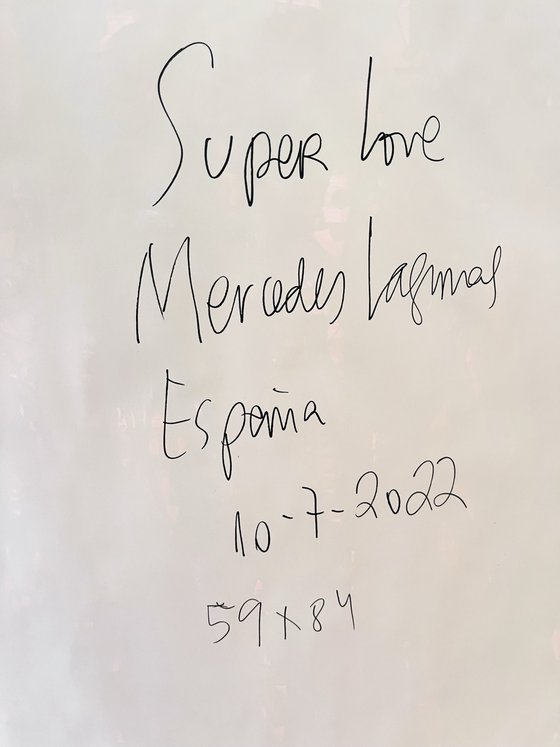 Super Love
Mercedes Lagunas
España
10-7-2022
59x84